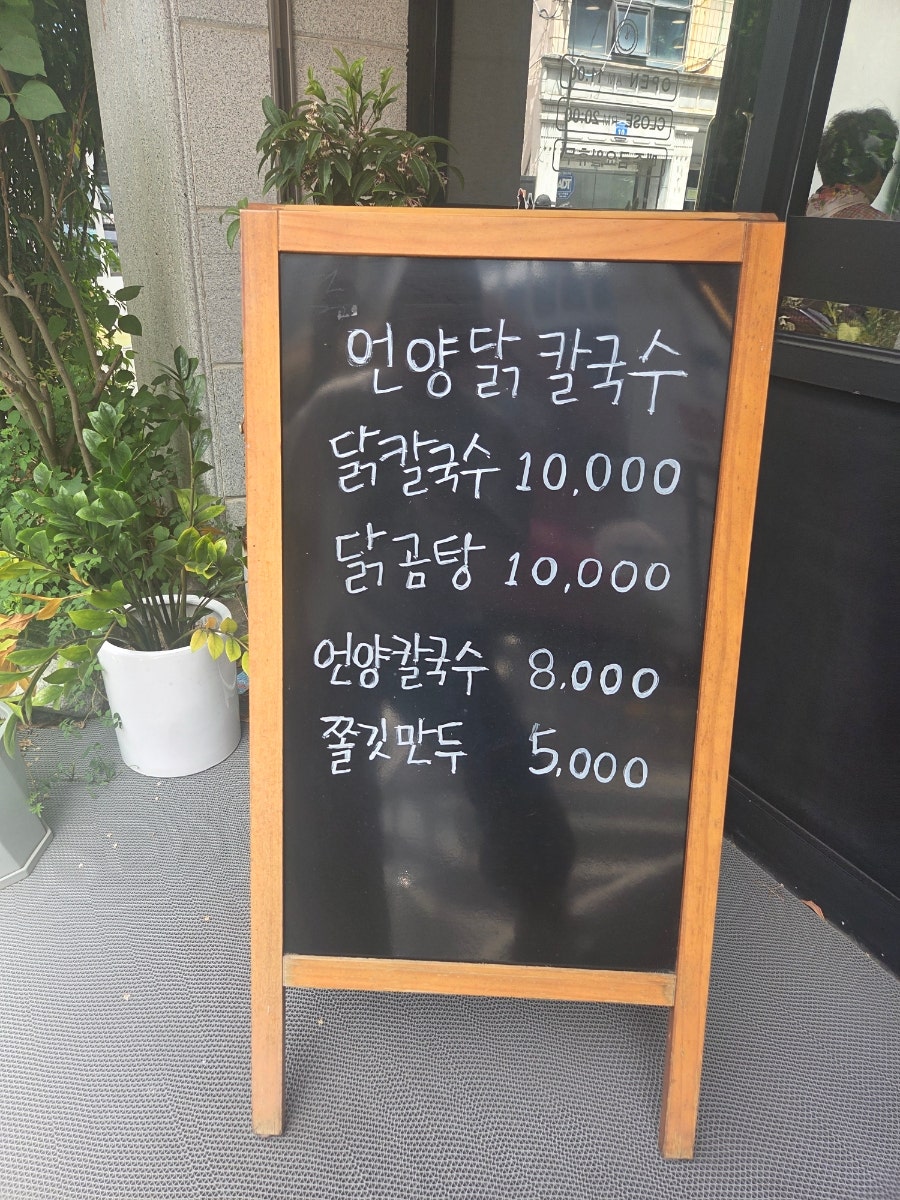 OPEN AM 11:00
CLOSE PM 20:00
언양닭칼국수
닭칼국수 10,000
닭곰탕 10,000
언양칼국수 8,000
쫄깃만두 5,000